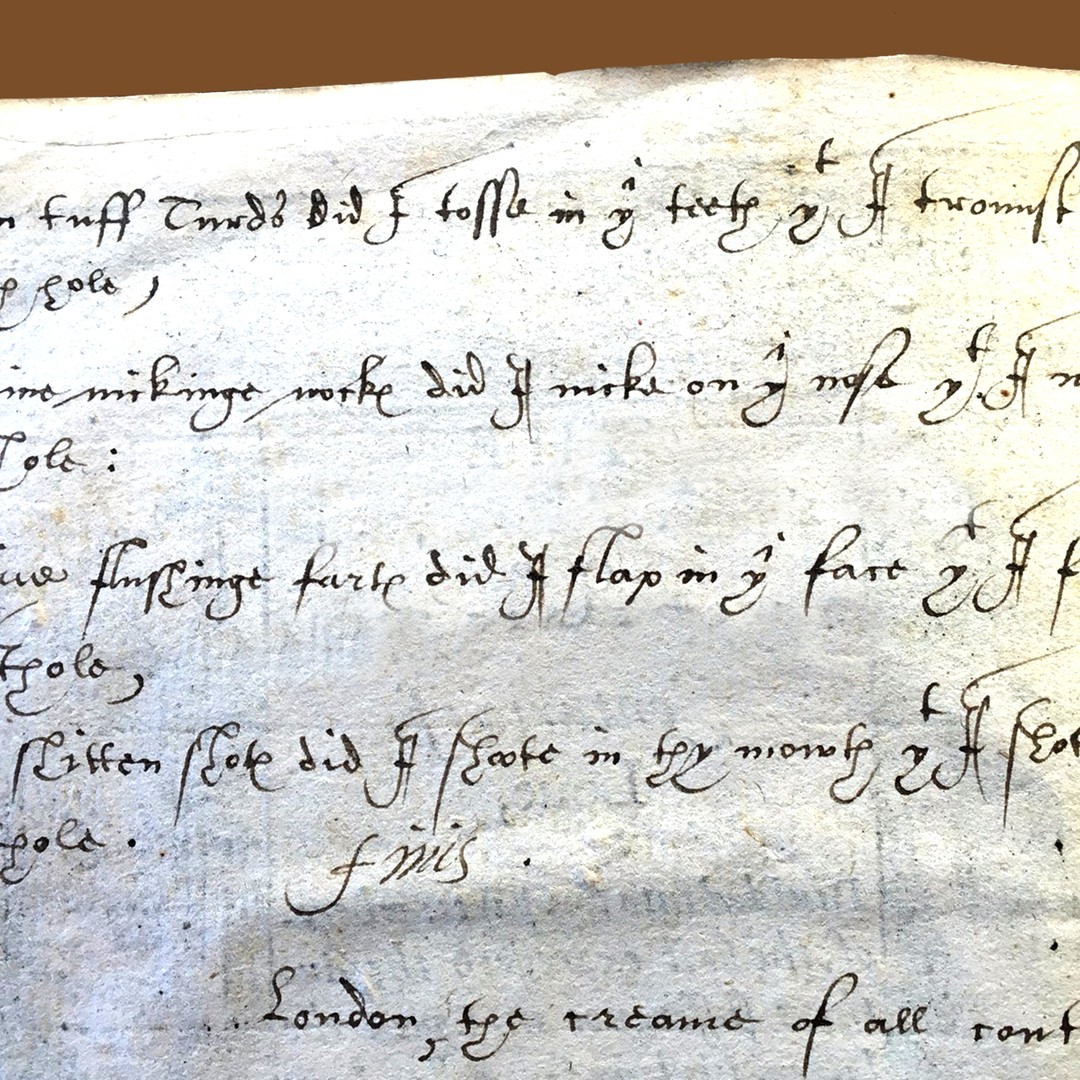 tuff Turds did I tosse in yi teeth yt I trowist
hole ,
nickinge nockes did I nicke on yi nose yt I
hole :
flushinge fartes did I flap in yi face yt I
hole ,
shitten shotes did I shoote in thy mowth yt I shot
hole .
finis .
London, the creame of all